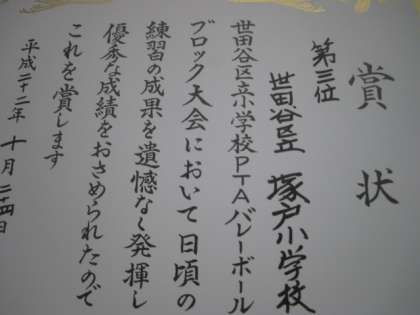 賞状
第三位
世田谷区立 塚戸小学校
世田谷区立小学校PTAバレーボール
ブロック大会において日頃の
練習の成果を遺憾なく発揮し
優秀な成績をおさめられたので
これを賞します
平成二十二年 十月 二十四日